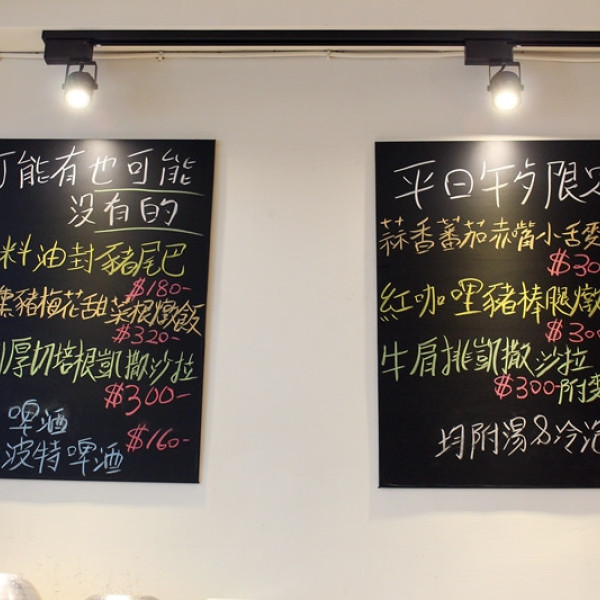 可能有也可能
沒有的
料油封豬尾巴
$180-
燻豬梅花甜菜根燉飯
$320-
厚切培根凱撒沙拉
$300-
啤酒
波特啤酒
$160-
平日午夕限定
蒜香蕃茄赤嘴小舌麥
$30
紅咖哩豬棒腿燉
$300
牛肩排凱撒沙拉
$300-附麥
均附湯&冷泡